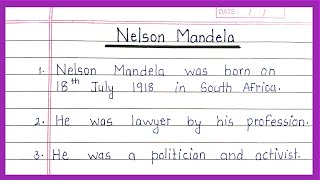 DATE: / /
Nelson Mandela
1. Nelson Mandela was born on
18th July 1918 in South Africa.
2. He was lawyer by his profession.
3. He was a politician and activist.